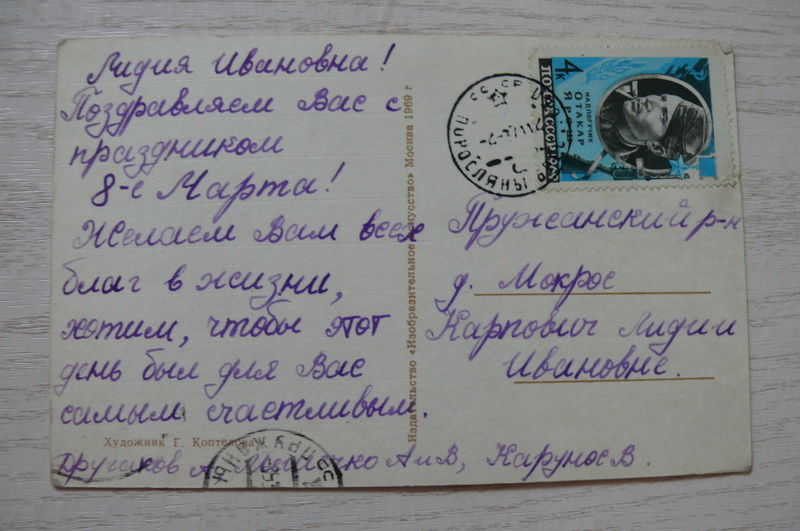 Лидия Ивановна!
Поздравляем Вас с
праздником
8-е Марта!
Желаем Вам всех
благ в жизни,
хотим, чтобы этот
день был для Вас
самым счастливым.
Художник Г. Коптелова
А. А и В, Карунос В.
Издательство «Изобразительное искусство» Москва 1969 г
4к
ПОЧТА СССР 1969
НАДПОРУЧИК
ОТАКАР
ЯРОШ
Пружанский р-н
д. Мокрое
Карпович Лидии
Ивановне.